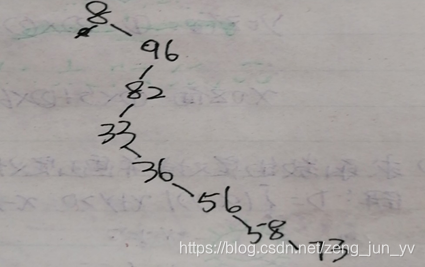 8
96
82
33
36
56
58
73
https://blog.csdn.net/zeng_jun_yv